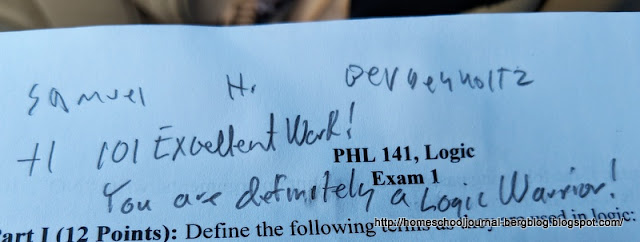 Samuel H.
+1 101 Excellent Work!
PHL 141, Logic
Exam 1
You are definitely a Logic Warrior!
Part I (12 Points): Define the following terms as used in logic:
http://homeschooljournal-bergblog.blogspot.com/